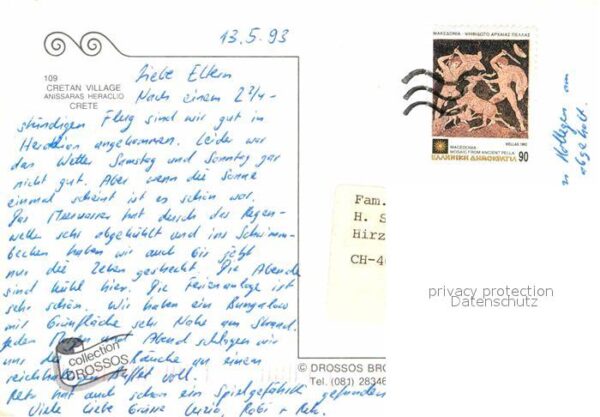 13.5.93
109
CRETAN VILLAGE
ANISSARAS HERACLIO
CRETE
Liebe Eltern
Nach einem 2 3/4-
stündigen Flug sind wir gut in
Heraklion angekommen. Leider war
das Wetter Samstag und Sonntag gar
nicht gut. Aber wenn die Sonne
einmal scheint ist es schön war.
Das Meerwasser hat durch das Regen-
wetter sehr abgekühlt und ins Schwimm-
becken haben wir auch bis jetzt
nur die Zehen gestreckt. Die Abende
sind kühl hier. Die Ferienanlage ist
sehr schön. Wir haben ein Bungalow
mit Grünfläche sehr Nahe am Strand.
Jeden Morgen und Abend schlagen wir
uns die Bäuche an einem
reichhaltigen Buffet voll.
Reto hat auch schon ein Spielgefährte gefunden
Viele liebe Grüsse Robi + Reto
collection
DROSSOS
MAKEDONIA - ΨΗΦΙΔΩΤΟ ΑΡΧΑΙΑΣ ΠΕΛΛΑΣ
MACEDONIA
MOSAIC FROM ANCIENT PELLA
HELLAS 1992
ΕΛΛΗΝΙΚΗ ΔΗΜΟΚΡΑΤΙΑ
90
Kollegen am
abgeholt.
Fam.
H. S
Hirz
CH-4
privacy protection
Datenschutz
© DROSSOS BRO
Tel. (081) 28346